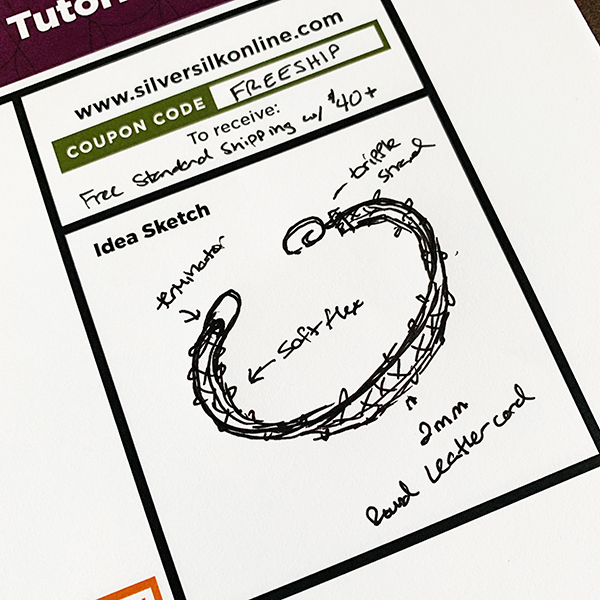 Tutor
www.silversilkonline.com
COUPON CODE FREESHIP
To receive:
Free Standard Shipping w/ $40+
Idea Sketch
tripple
strand
terminator
Soft flex
2mm
Round Leather cord